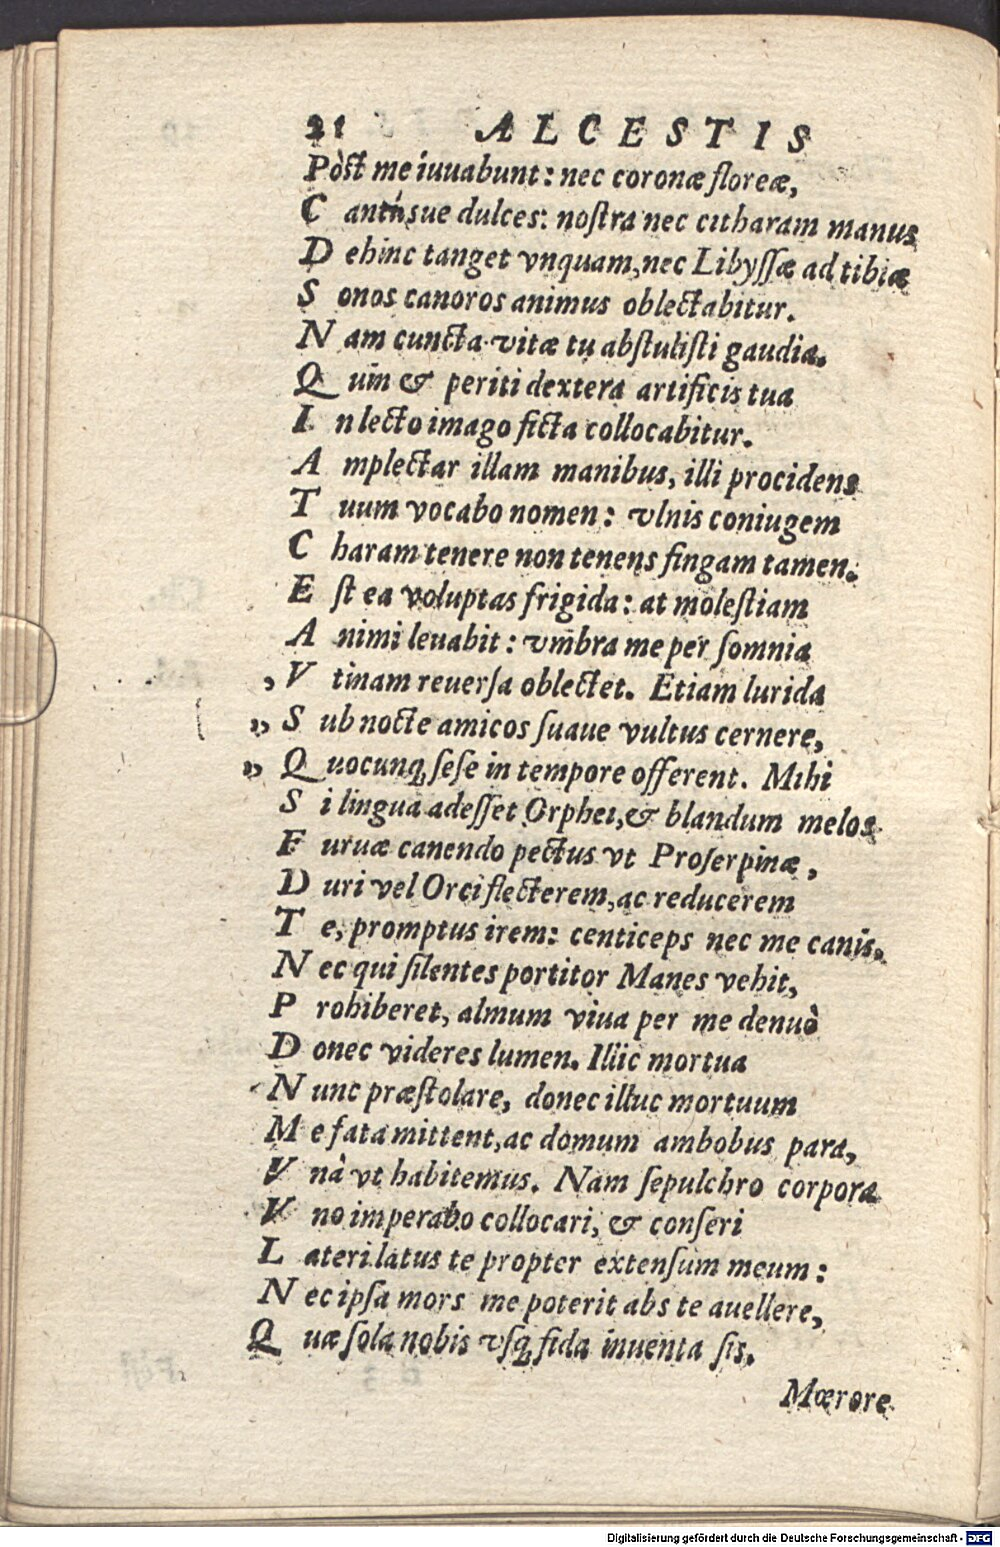 21 ALCESTIS
Pòst me iuuabunt: nec coronæ floreæ,
C antúsue dulces: nostra nec citharam manus
D ehinc tanget vnquam, nec Libyssæ ad tibiæ
S onos canoros animus oblectabitur.
N am cuncta vitæ tu abstulisti gaudia.
Q uin & periti dextera artificis tua
I n lecto imago ficta collocabitur.
A mplectar illam manibus, illi procidens
T uum vocabo nomen: vlnis coniugem
C haram tenere non tenens fingam tamen.
E st ea voluptas frigida: at molestiam
A nimi leuabit: vmbra me per somnia
,V tinam reuersa oblectet. Etiam lurida
,, S ub nocte amicos suaue vultus cernere,
,, Q uocunq; sese in tempore offerent. Mihi
S i lingua adesset Orphei, & blandum melos
F uruæ canendo pectus vt Proserpinæ,
D uri vel Orci flecterem, ac reducerem
T e, promptus irem: centiceps nec me canis.
N ec qui silentes portitor Manes vehit,
P rohiberet, almum viua per me denuò
D onec videres lumen. Illic mortua
N unc præstolare, donec illuc mortuum
M e fata mittent, ac domum ambobus para,
V nà vt habitemus. Nam sepulchro corpora
V no imperabo collocari, & conseri
L ateri latus te propter extensum meum:
N ec ipsa mors me poterit abs te auellere,
Q uæ sola nobis vsq; fida inuenta sis.
Mœrore
Digitalisierung gefördert durch die Deutsche Forschungsgemeinschaft - DFG